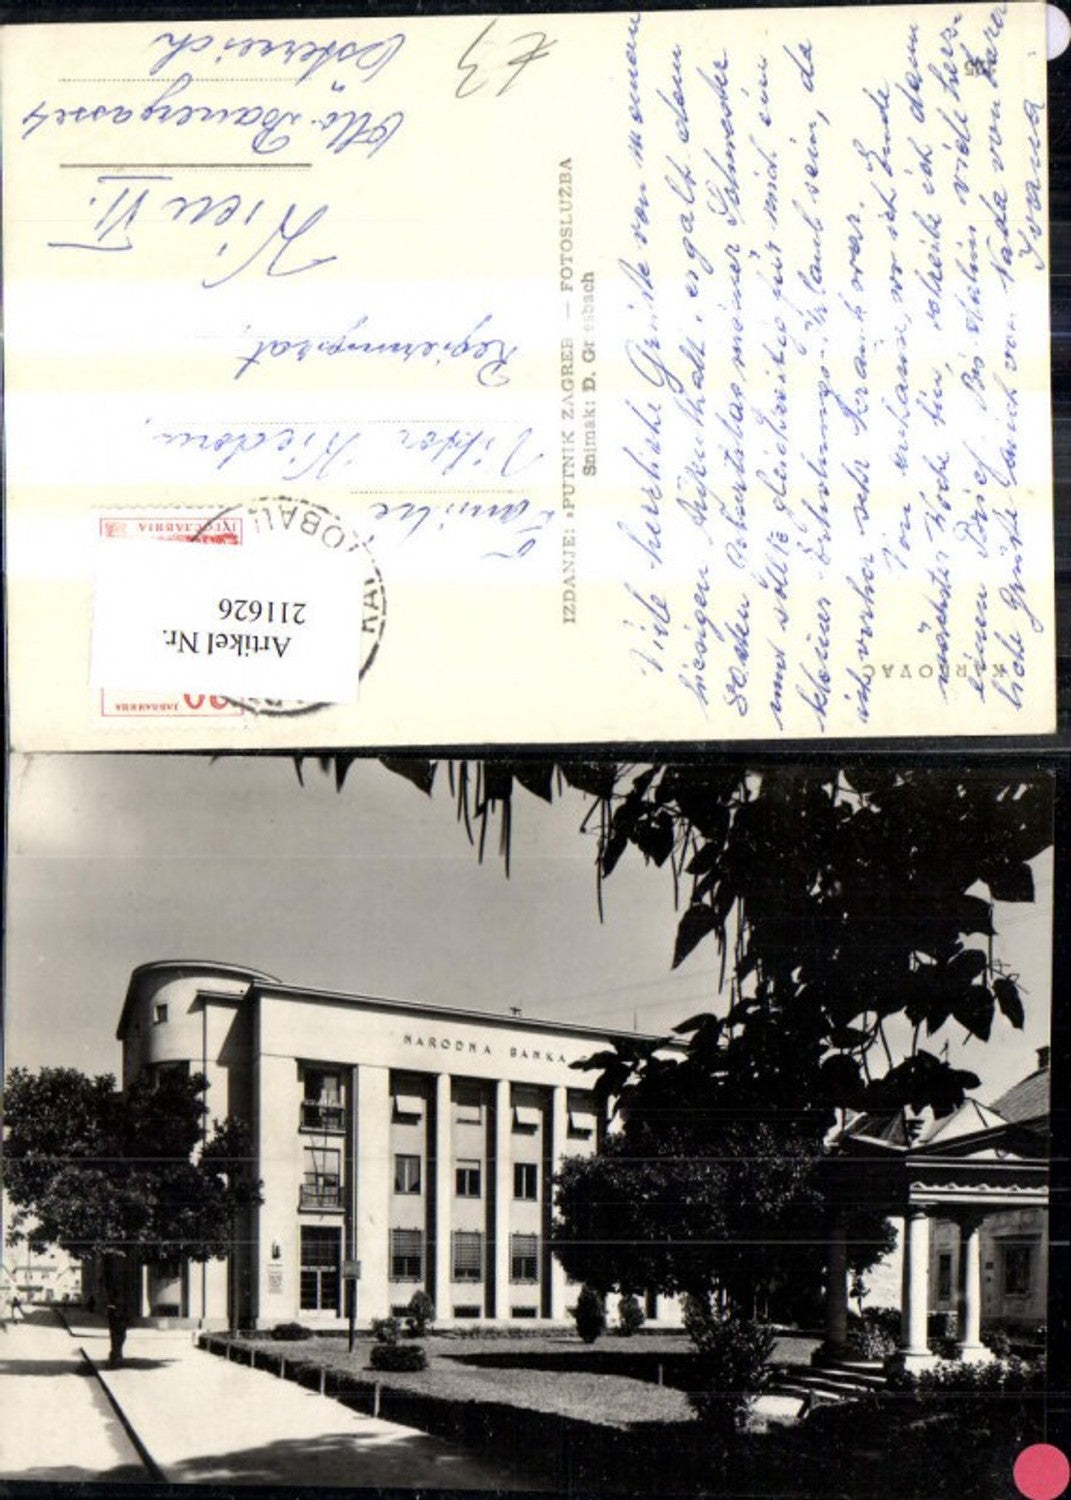 KARLOVAC
Viele herzliche Grüße von meinem
hiesigen Aufenthalt, er galt dem
80sten Geburtstag meiner Schwester
und sollte gleichzeitig für mich ein
kleiner Erholungsurlaub sein, da
ich vorher sehr krank war.
Von zuhause, wo ich Ende
nächster Woche bin, schreibe ich dann
einen Brief. Bis dahin viele herz-
liche Grüße auch von Nada von Eurer
Ivana
IZDANJE: »PUTNIK ZAGREB — FOTOSLUŽBA
Snimak: D. Griesbach
Familie
Viktor
Regierungsrat
Wien VI.
Otto Bauergasse
Österreich
ЈУГОСЛАВИЈА
Artikel Nr.
211626
NARODNA BANKA